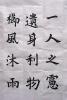 一人之慮
遺身利物
櫛風沐雨